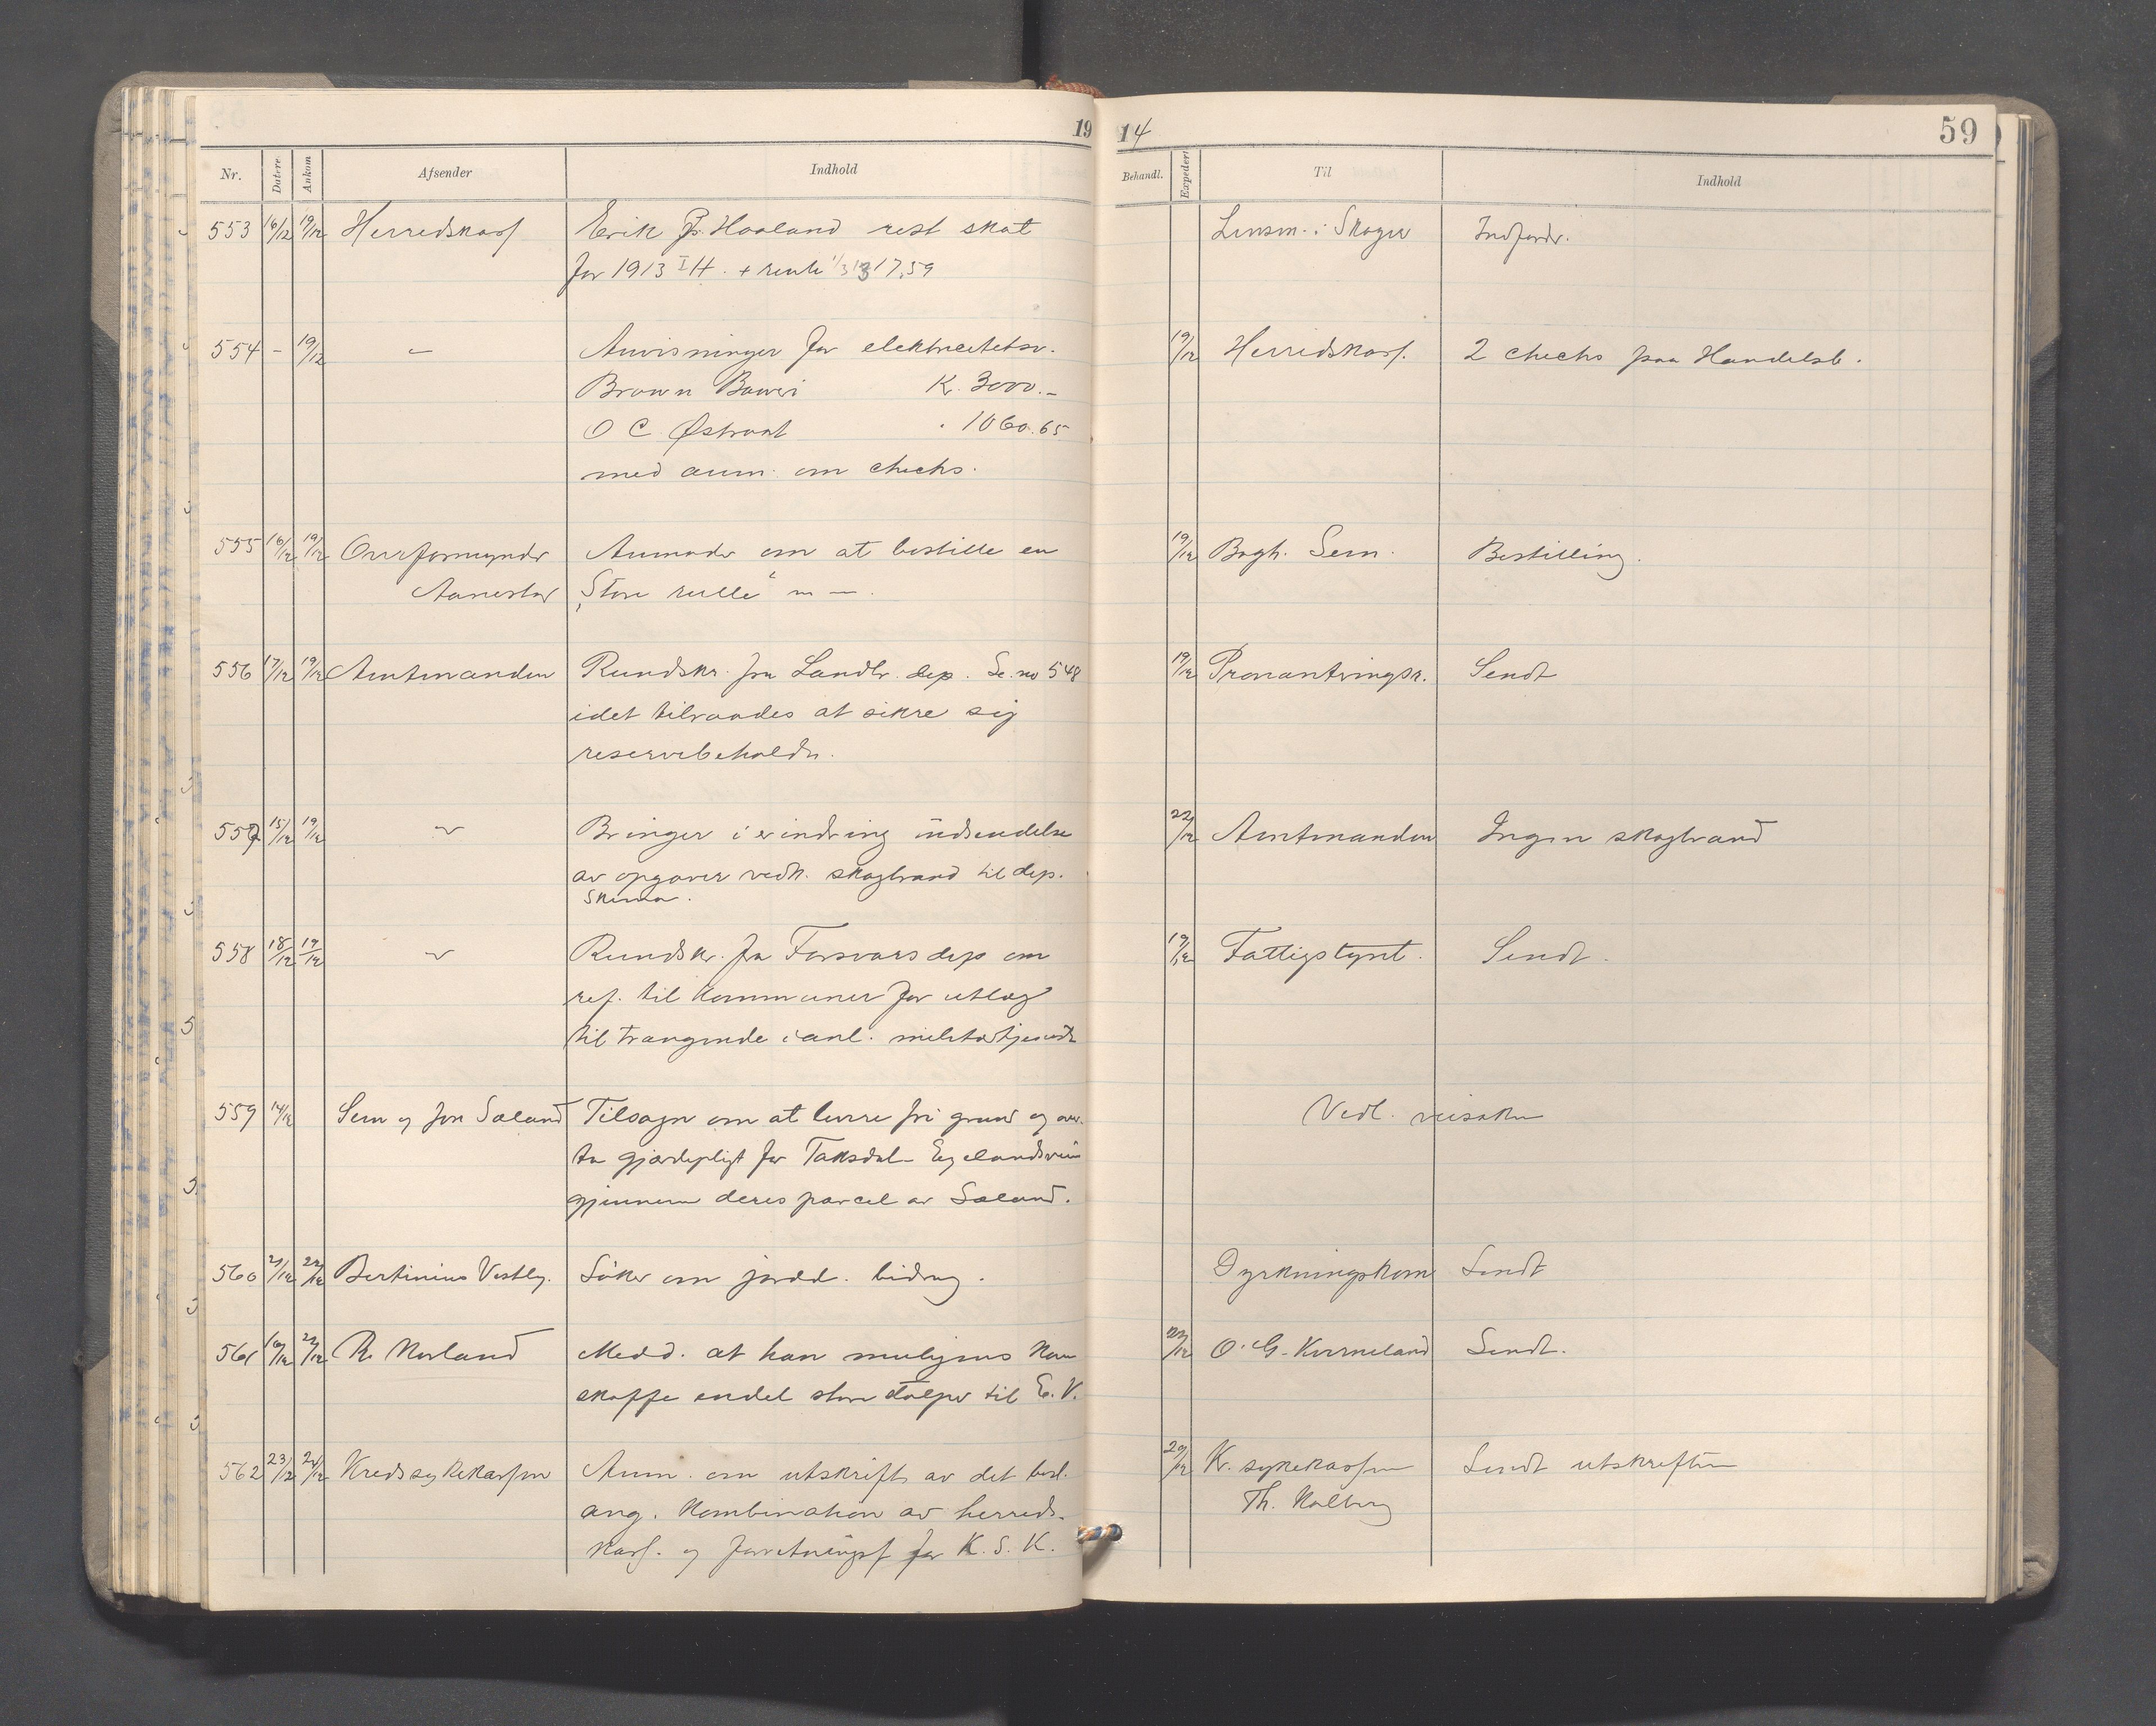 1914
59
Nr. Datere Ankom Afsender Indhold Behandl. Expedert Til Indhold
553 16/12 19/12 Herredskass. Erik Haaland rest skat Lensm. i Skoger Indfordr.
for 1913 I H. + rente 17,59
554 - 19/12 — Anvisninger for elektricitetsv. 19/12 Herredskass. 2 checks paa Handelsb.
Brown Boweri K. 3000.-
O C Østraat 1060.65
med anm. om checks.
555 16/12 19/12 Overformynder Anmoder om at bestille en 19/12 Bogh. Sem. Bestilling.
Aanestad „Store rulle"
556 17/12 19/12 Amtmanden Rundskr. fra Landbr. dep. Se. no 548 19/12 Provianteringsr. Sendt
idet tilraades at sikre sig
reservebeholdn.
557 15/12 19/12 — Bringer i erindring indsendelse 22/12 Amtmanden Ingen skogbrand
av opgaver vedk. skogbrand til dep.
Skema.
558 18/12 19/12 — Rundskr. fra Forsvarsdep om 19/12 Fattigstyret. Sendt.
ref. til kommuner for utlæg
til trængende i anl. militærtjeneste
559 14/12 Sem og Jon Sæland Tilsagn om at levere fri grund og over- Vedl. veisaken
ta gjerdepligt for Taksdal- Eegelandsvein
gjennem deres parcel av Sæland.
560 21/12 22/12 Bertinius Vestly. Søker om jordd. bidrag. Dyrkningskom Sendt
561 16/12 22/12 R. Norland Medd. at han muligens kan 22/12 O. G. Kverneland Sendt.
skaffe endel store stolper til E. V.
562 23/12 24/12 Kredssykekassen Anm. om utskrift av det besl. 29/12 Kr. sykekassen Sendt utskriften
ang. kombination av herreds- Th. Kalberg
kass. og forretningsf for K. S. K.